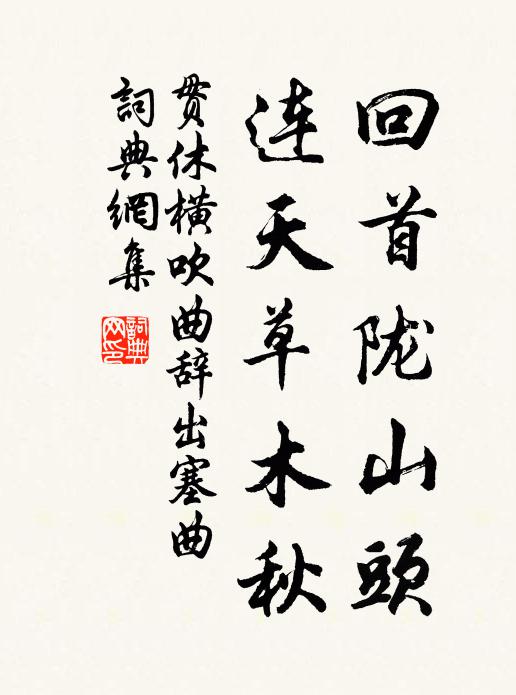 回首陇山頭
连天草木秋
贯休橫吹曲辞出塞曲
詞典網集
詞典
网印